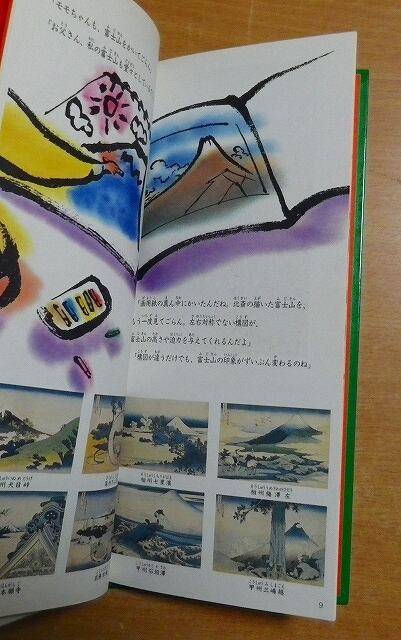 「モモちゃんも、富士山をかいてごらん」
「お父さん、私の富士山も堂々としている
「画用紙の真ん中にかいたんだね。北斎の描いた富士山を、
もう一度見てごらん。左右対称でない構図が、
富士山の高さや迫力を与えてくれるんだよ」
「構図が違うだけでも、富士山の印象がずいぶん変わるのね」
州犬目峠
相州七里濱
相州梅澤左
本願寺
甲州石班澤
甲州三嶌越
9